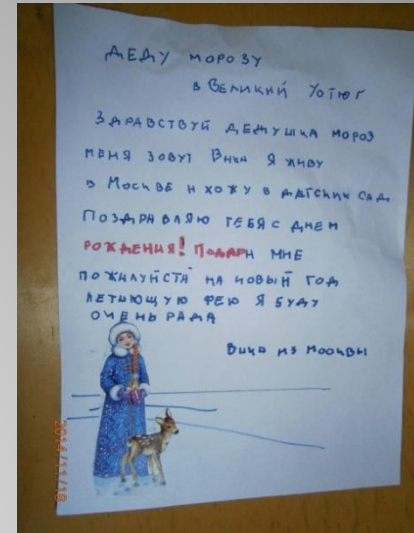 ДЕДУ МОРОЗУ
В ВЕЛИКИЙ УСТЮГ
ЗДРАВСТВУЙ ДЕДУШКА МОРОЗ
МЕНЯ ЗОВУТ ВИКА Я ЖИВУ
В МОСКВЕ И ХОЖУ В ДЕТСКИЙ САД
ПОЗДРАВЛЯЮ ТЕБЯ С ДНЕМ
РОЖДЕНИЯ! ПОДАРИ МНЕ
ПОЖАЛУЙСТА НА НОВЫЙ ГОД
ЛЕТАЮЩУЮ ФЕЮ Я БУДУ
ОЧЕНЬ РАДА
ВИКА ИЗ МОСКВЫ
2014/11/18